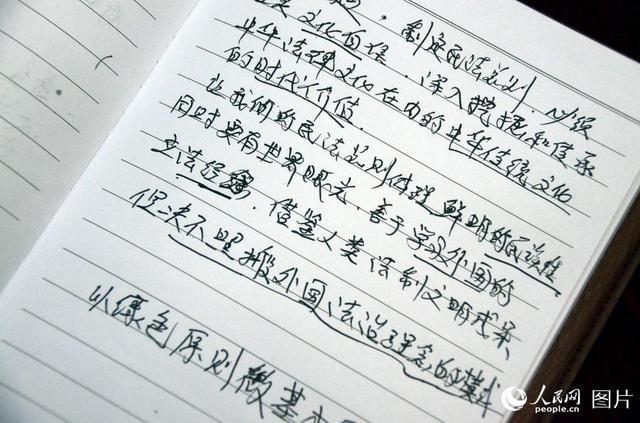 制定民法总则,必须
文化自信,深入挖掘和传承
中华法律文化在内的中华传统文化
的时代价值.
让我们的民法总则体现鲜明的民族性
同时要有世界眼光,善于学习外国的
立法经验,借鉴人类法制文明成果
但决不照搬外国法治理念的模式
以绿色原则做基本
人民网 图片
people.cn